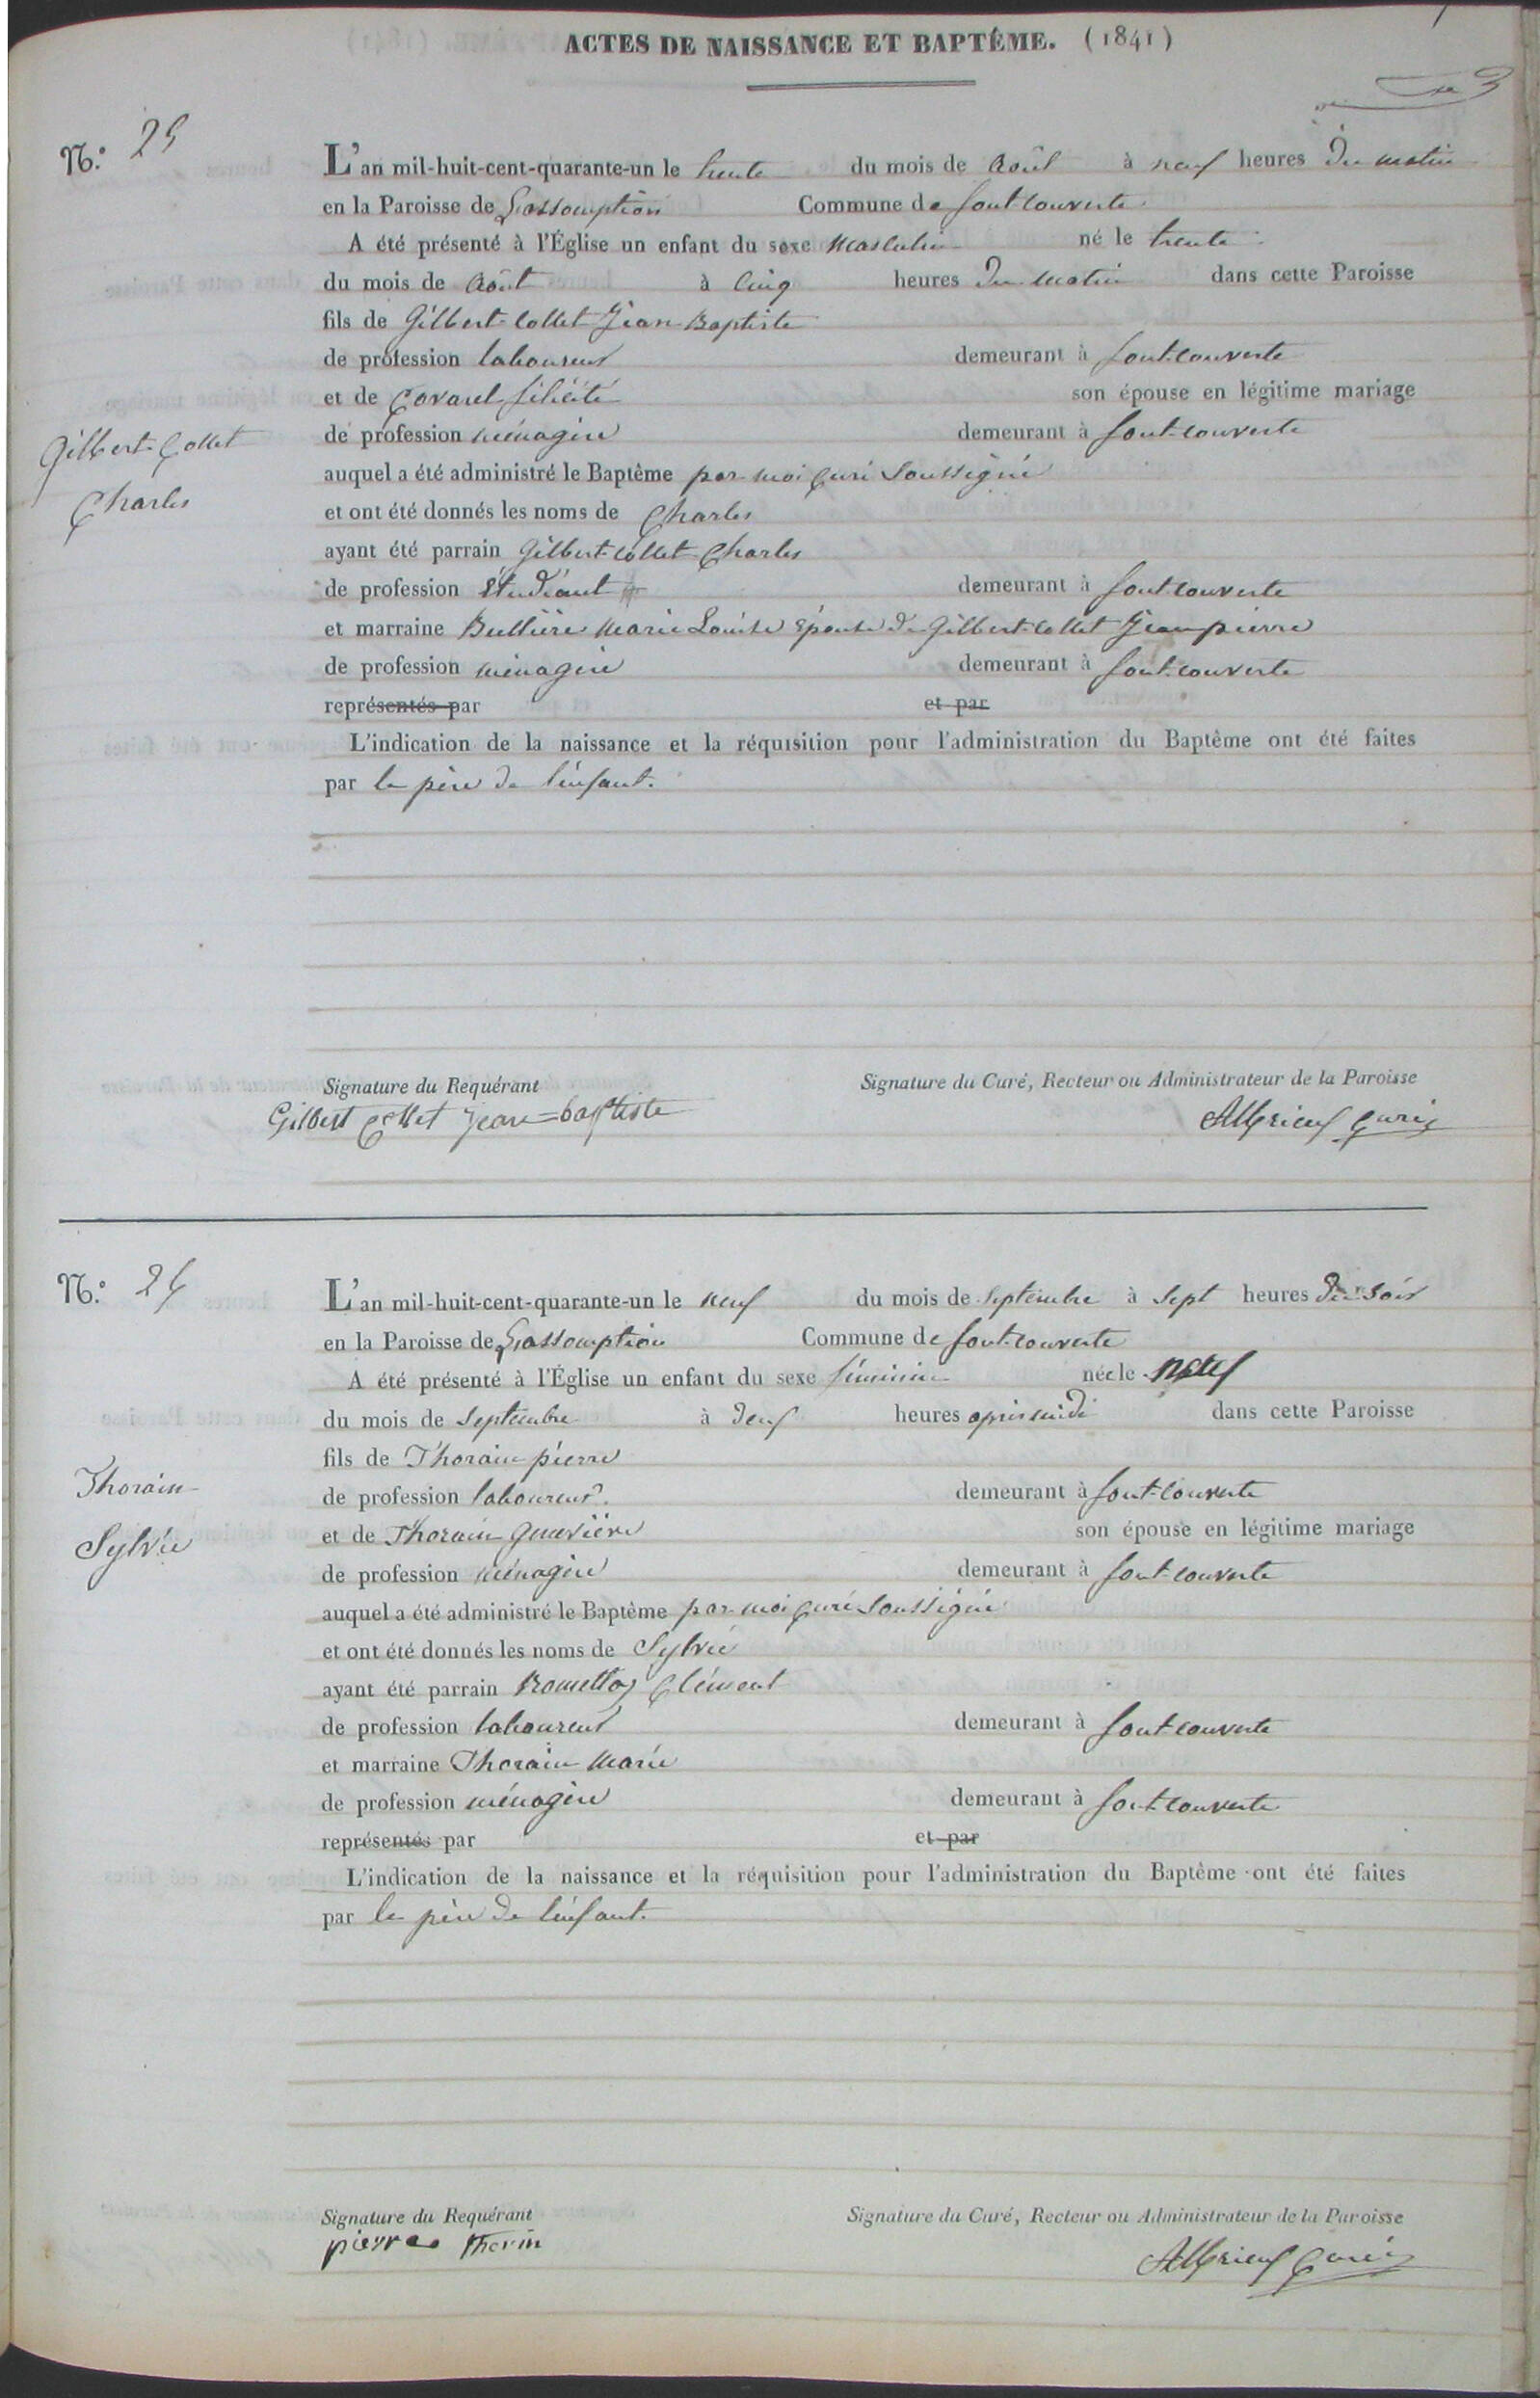 ACTES DE NAISSANCE ET BAPTÊME. (1841)
N.º 25
L'an mil-huit-cent-quarante-un le trente du mois de Août à neuf heures du matin
en la Paroisse de L'assomption Commune de font-couverte
A été présenté à l'Église un enfant du sexe Masculin né le trente
du mois de Août à Cinq heures du matin dans cette Paroisse
fils de Gilbert-Collet Jean Baptiste
de profession laboureur demeurant à font-couverte
et de Covarel félicité son épouse en légitime mariage
de profession ménagère demeurant à font-couverte
Gilbert-Collet
Charles
auquel a été administré le Baptême par moi Curé Soussigné
et ont été donnés les noms de Charles
ayant été parrain Gilbert-Collet Charles
de profession étudiant demeurant à font-couverte
et marraine Marie Louise épouse de Gilbert-Collet Jean pierre
de profession ménagère demeurant à font-couverte
représentés par et par
L'indication de la naissance et la réquisition pour l'administration du Baptême ont été faites
par le père de l'enfant.
Signature du Requérant Signature du Curé, Recteur ou Administrateur de la Paroisse
Gilbert Collet jean=baptiste Albrieux Curé
N.º 26
L'an mil-huit-cent-quarante-un le neuf du mois de septembre à sept heures du soir
en la Paroisse de L'assomption Commune de font-couverte
A été présenté à l'Église un enfant du sexe féminin née le neuf
du mois de septembre à deux heures après midi dans cette Paroisse
fils de Thorain pierre
de profession laboureur demeurant à font-couverte
Thorain
Sylvie
et de Thorain Geneviève son épouse en légitime mariage
de profession ménagère demeurant à font-couverte
auquel a été administré le Baptême par moi Curé Soussigné
et ont été donnés les noms de Sylvie
ayant été parrain Clément
de profession laboureur demeurant à font-couverte
et marraine Thorain Marie
de profession ménagère demeurant à font-couverte
représentés par et par
L'indication de la naissance et la réquisition pour l'administration du Baptême ont été faites
par le père de l'enfant.
Signature du Requérant Signature du Curé, Recteur ou Administrateur de la Paroisse
pierre thorin Albrieux Curé